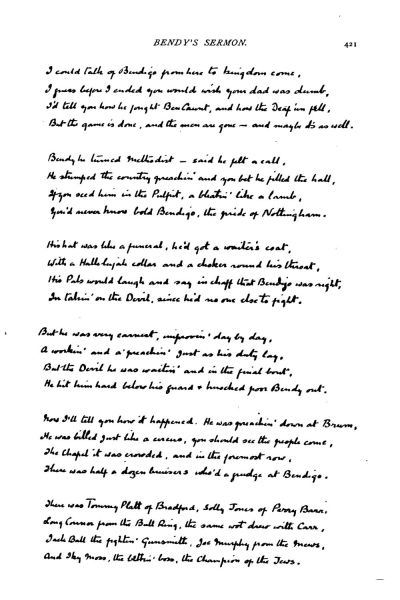 BENDY'S SERMON.
421
I could talk of Bendigo from here to kingdom come,
I guess before I ended you would wish your dad was dumb,
I'd tell you how he fought Ben Caunt, and how the Deaf 'un fell,
But the game is done, and the men are gone — and maybe it's as well.
Bendy he turned Methodist — said he felt a call,
He stumped the country preachin' and you bet he filled the hall,
If you seed him in the Pulpit, a bleatin' like a lamb,
You'd never know bold Bendigo, the pride of Nottingham.
His hat was like a funeral, he'd got a waiter's coat,
With a Hallelujah collar and a choker round his throat,
His Pals would laugh and say in chaff that Bendigo was right,
In takin' on the Devil, since he'd no one else to fight.
But he was very earnest, improvin' day by day,
A workin' and a preachin' just as his duty lay,
But the Devil he was waitin' and in the final bout,
He hit him hard below his guard & knocked poor Bendy out.
Now I'll tell you how it happened. He was preachin' down at Brum,
He was billed just like a circus, you should see the people come,
The chapel it was crowded, and in the foremost row,
There was half a dozen bruisers who'd a grudge at Bendigo.
There was Tommy Platt of Bradford, Solly Jones of Perry Barr,
Long Connor from the Bull Ring, the same wot drew with Carr,
Jack Ball the fightin' Gunsmith, Joe Murphy from the Mews,
And Iky Moss, the bettin' boss, the Champion of the Jews.